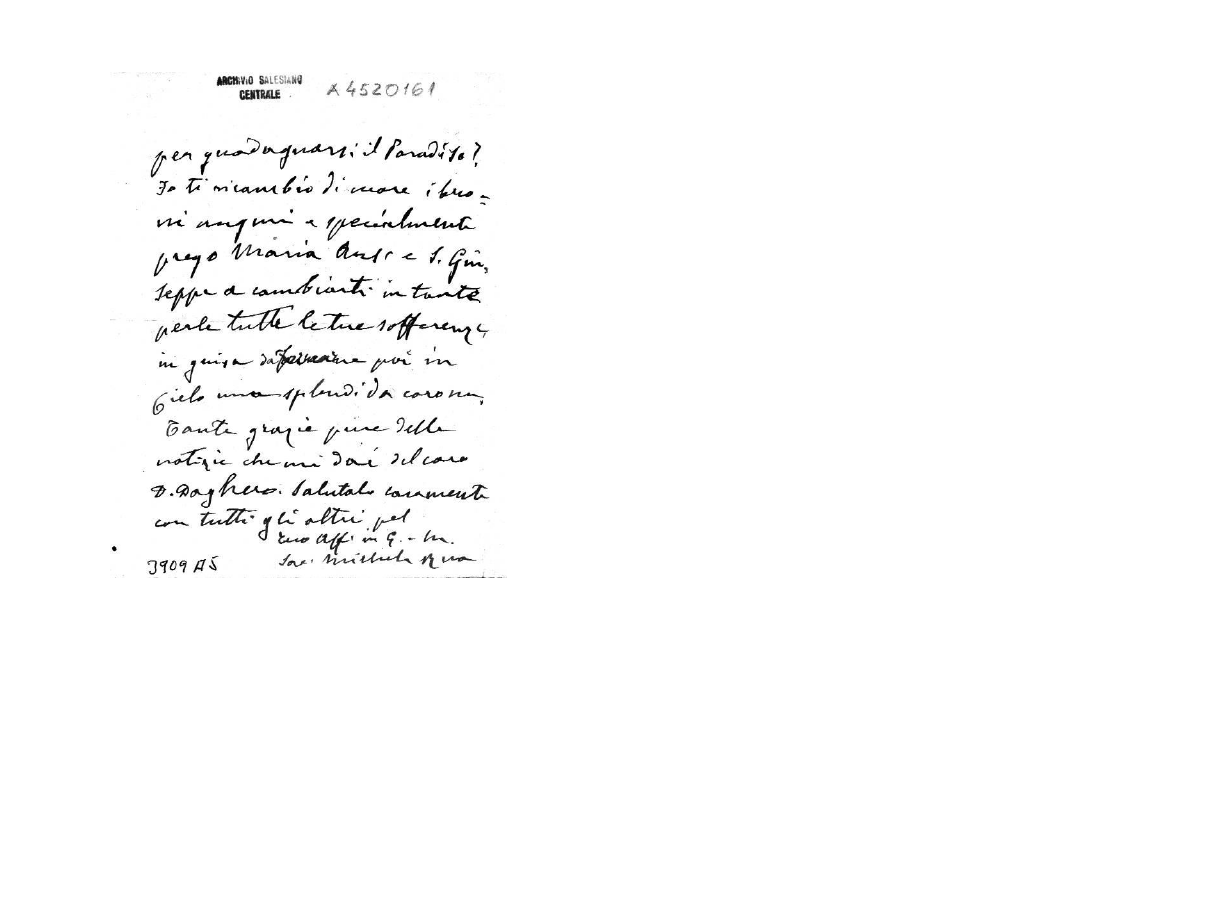 ARCHIVIO SALESIANO
CENTRALE
A4520161
per guadagnarsi il Paradiso?
Io ti ricambio di cuore i buo=
ni auguri e specialmente
prego Maria Aus. e S. Giu,
seppe a cambiarti in tante
perle tutte le tue sofferenze,
in guisa da poi in
Cielo una splendida corona,
Tante grazie pure delle
notizie che mi dai del caro
D. Daghero. Salutalo caramente
con tutti gli altri pel
tuo Aff. in G. - M.
Sac. Michele Rua
3909 A5